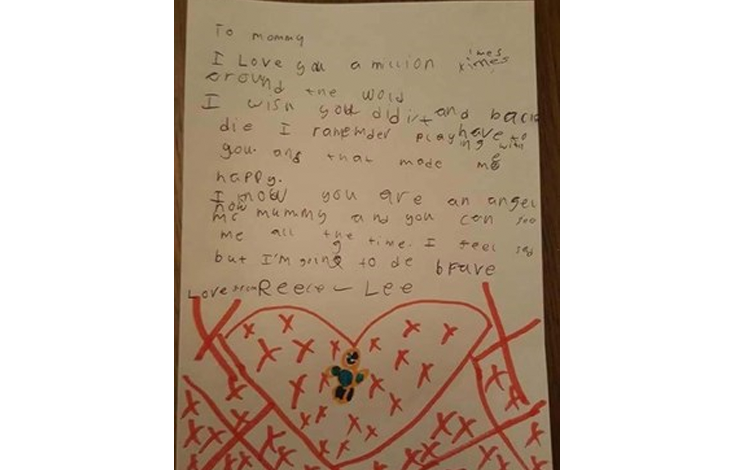 To mommy
I Love you a million ximes imes
around the World
I wish you didirt and back
die I ramemder playing with have to
you. and that made me
happy.
I know you are an angel
now mummy and you can see
me all the time. I feel sad
but I'm going to de brave
Love from Reece - Lee
X X X X X X X X X X X X X X X X X X X X X X X X X X X X X X X X